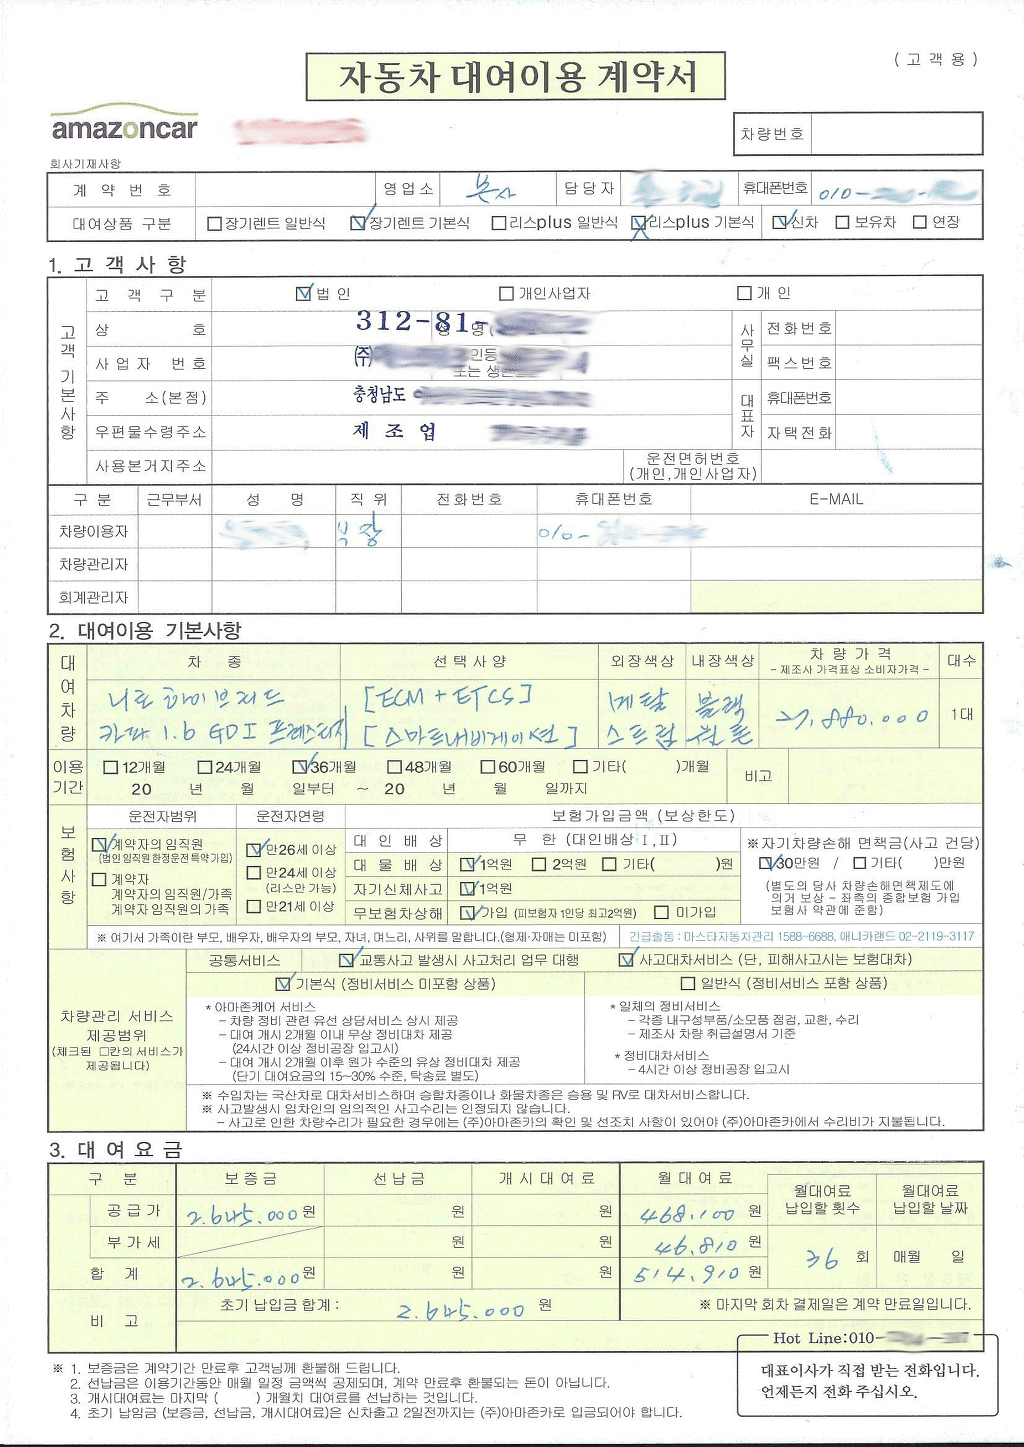 ( 고 객 용 )
자동차 대여이용 계약서
amazoncar
차량번호
회사기재사항
계 약 번 호 영업소 본사 담당자 휴대폰번호 010-
대여상품 구분 □장기렌트 일반식 ☑장기렌트 기본식 □리스plus 일반식 ☑리스plus 기본식 ☑신차 □ 보유차 □ 연장
1. 고 객 사 항
고객 기본사항
고 객 구 분 ☑ 법 인 □ 개인사업자 □ 개 인
상 호 312-81- 성 명( 사무실 전화번호
사업자 번호 (주) 팩스번호
또는 생
주 소(본점) 충청남도 대표자 휴대폰번호
우편물수령주소 제 조 업 자택전화
사용본거지주소 운전면허번호
(개인,개인사업자)
구 분 근무부서 성 명 직 위 전화번호 휴대폰번호 E-MAIL
차량이용자 부장 010-
차량관리자
회계관리자
2. 대여이용 기본사항
대여차량
차 종 선택사양 외장색상 내장색상 차 량 가 격 대수
- 제조사 가격표상 소비자가격 -
니로 하이브리드 [ECM + ETCS] 메탈 블랙 27,880,000 1대
카파 1.6 GDI 프레스티지 [스마트내비게이션] 스트림 원톤
이용기간 □12개월 □24개월 ☑36개월 □48개월 □60개월 □기타( )개월 비고
20 년 월 일부터 ~ 20 년 월 일까지
보험사항
운전자범위 운전자연령 보험가입금액 (보상한도)
☑계약자의 임직원
(법인 임직원 한정운전 특약 가입)
□ 계약자
계약자의 임직원/가족
계약자 임직원의 가족
☑만26세 이상
□ 만24세 이상
(리스만 가능)
□ 만21세 이상
대 인 배 상 무 한 (대인배상 I , II)
대 물 배 상 ☑1억원 □ 2억원 □ 기타( )원
자기신체사고 ☑1억원
무보험차상해 ☑가입 (피보험자 1인당 최고2억원) □ 미가입
※자기차량손해 면책금(사고 건당)
☑30만원 / □기타( )만원
(별도의 당사 차량손해면책제도에
의거 보상 – 좌측의 종합보험 가입
보험사 약관에 준함)
※ 여기서 가족이란 부모, 배우자, 배우자의 부모, 자녀, 며느리, 사위를 말합니다.(형제·자매는 미포함)
긴급출동 : 마스타자동차관리 1588-6688, 애니카랜드 02-2119-3117
차량관리 서비스
제공범위
(체크된 □칸의 서비스가
제공됩니다)
공통서비스 ☑ 교통사고 발생시 사고처리 업무 대행 ☑ 사고대차서비스 (단, 피해사고시는 보험대차)
☑ 기본식 (정비서비스 미포함 상품) □ 일반식 (정비서비스 포함 상품)
* 아마존케어 서비스
– 차량 정비 관련 유선 상담서비스 상시 제공
– 대여 개시 2개월 이내 무상 정비대차 제공
(24시간 이상 정비공장 입고시)
– 대여 개시 2개월 이후 원가 수준의 유상 정비대차 제공
(단기 대여요금의 15~30% 수준, 탁송료 별도)
* 일체의 정비서비스
– 각종 내구성부품/소모품 점검, 교환, 수리
– 제조사 차량 취급설명서 기준
* 정비대차서비스
– 4시간 이상 정비공장 입고시
※ 수입차는 국산차로 대차서비스하며 승합차종이나 화물차종은 승용 및 RV로 대차서비스합니다.
※ 사고발생시 임차인의 임의적인 사고수리는 인정되지 않습니다.
– 사고로 인한 차량수리가 필요한 경우에는 (주)아마존카의 확인 및 선조치 사항이 있어야 (주)아마존카에서 수리비가 지불됩니다.
3. 대 여 요 금
구 분 보증금 선납금 개시대여료 월대여료 월대여료 납입할 횟수 월대여료 납입할 날짜
공급가 2.645.000원 원 원 468.100 원
부가세 원 원 46.810 원 36 회 매월 일
합 계 2.645.000원 원 원 514.910 원
비 고 초기 납입금 합계 : 2.645.000 원 ※ 마지막 회차 결제일은 계약 만료일입니다.
Hot Line:010-
대표이사가 직접 받는 전화입니다.
언제든지 전화 주십시오.
※ 1. 보증금은 계약기간 만료후 고객님께 환불해 드립니다.
2. 선납금은 이용기간동안 매월 일정 금액씩 공제되며, 계약 만료후 환불되는 돈이 아닙니다.
3. 개시대여료는 마지막 ( ) 개월치 대여료를 선납하는 것입니다.
4. 초기 납임금 (보증금, 선납금, 개시대여료)은 신차출고 2일전까지는 (주)아마존카로 입금되어야 합니다.